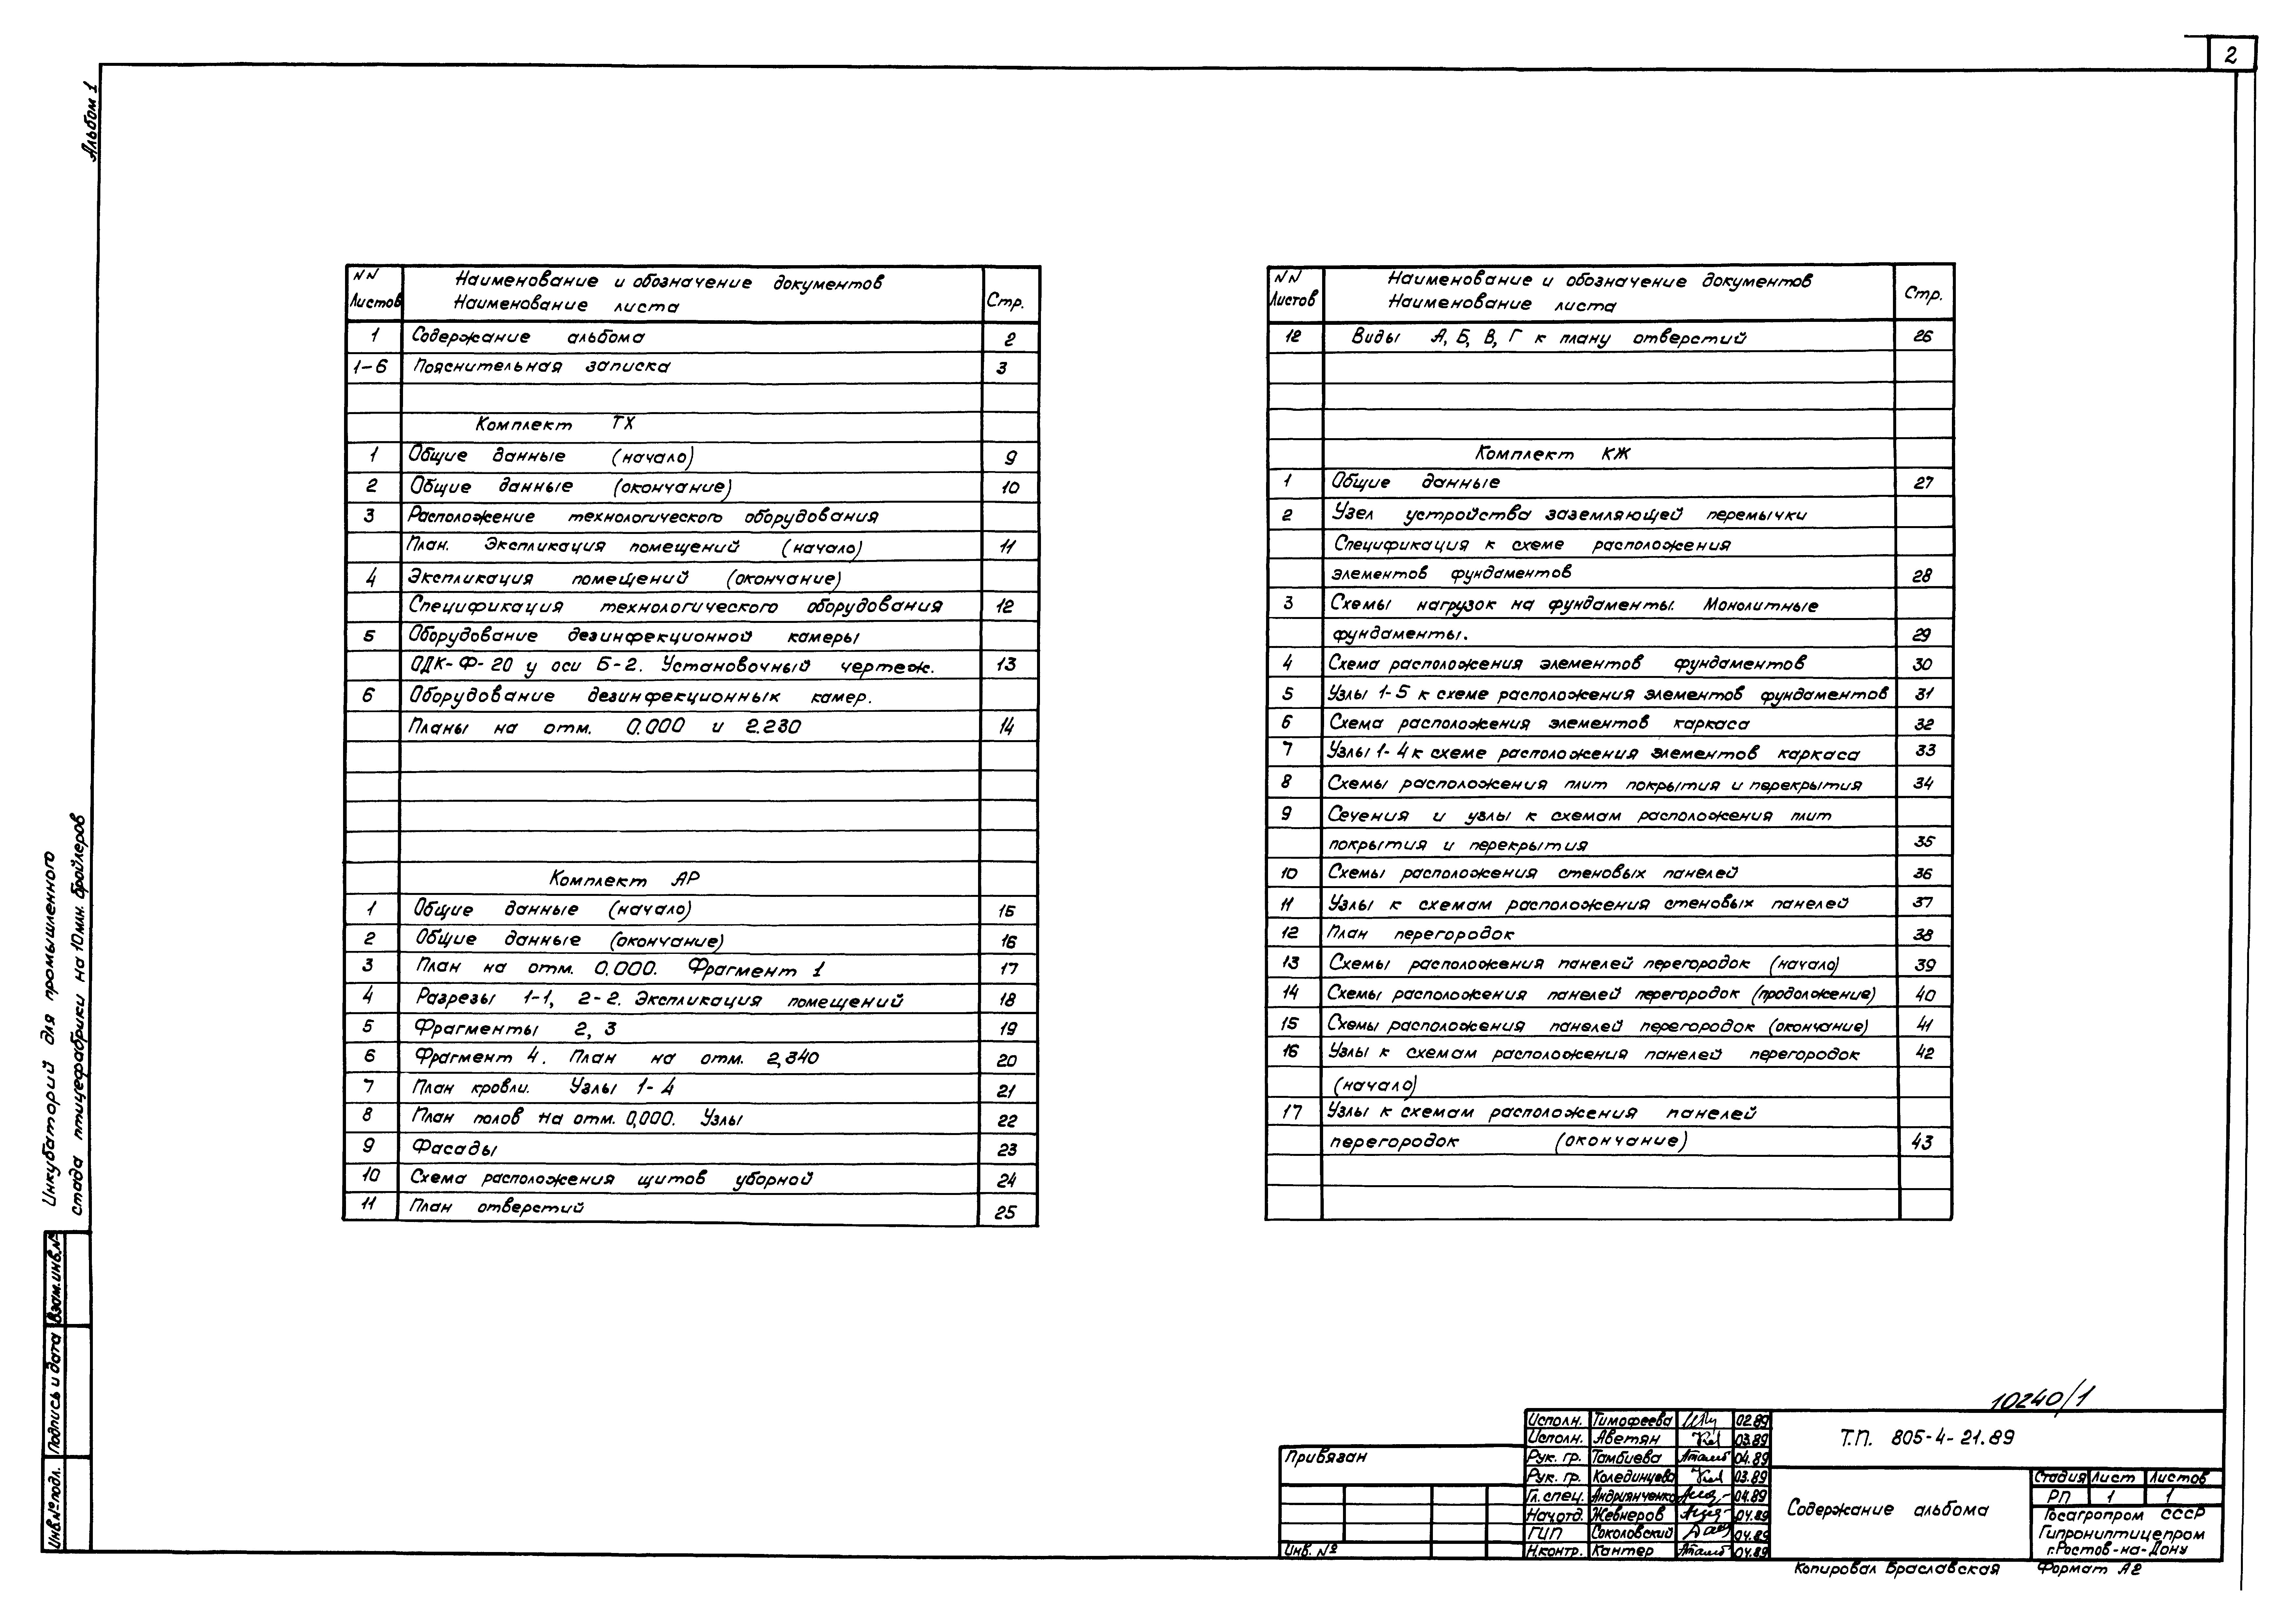 2
Альбом 1
Инкубаторий для промышленного
стада птицефабрики на 10 млн. бройлеров
Взам.инв.№
Подпись и дата
Инв.№ подл.
NN Листов Наименование и обозначение документов Наименование листа Стр.
1 Содержание альбома 2
1-6 Пояснительная записка 3
Комплект ТХ
1 Общие данные (начало) 9
2 Общие данные (окончание) 10
3 Расположение технологического оборудования
План. Экспликация помещений (начало) 11
4 Экспликация помещений (окончание)
Спецификация технологического оборудования 12
5 Оборудование дезинфекционной камеры
ОДК-Ф-20 у оси Б-2. Установочный чертеж. 13
6 Оборудование дезинфекционных камер.
Планы на отм. 0.000 и 2.230 14
Комплект АР
1 Общие данные (начало) 15
2 Общие данные (окончание) 16
3 План на отм. 0.000. Фрагмент 1 17
4 Разрезы 1-1, 2-2. Экспликация помещений 18
5 Фрагменты 2, 3 19
6 Фрагмент 4. План на отм. 2,840 20
7 План кровли. Узлы 1-4 21
8 План полов на отм. 0,000. Узлы 22
9 Фасады 23
10 Схема расположения щитов уборной 24
11 План отверстий 25
NN Листов Наименование и обозначение документов Наименование листа Стр.
12 Виды А, Б, В, Г к плану отверстий 26
Комплект КЖ
1 Общие данные 27
2 Узел устройства заземляющей перемычки
Спецификация к схеме расположения
элементов фундаментов 28
3 Схемы нагрузок на фундаменты. Монолитные
фундаменты. 29
4 Схема расположения элементов фундаментов 30
5 Узлы 1-5 к схеме расположения элементов фундаментов 31
6 Схема расположения элементов каркаса 32
7 Узлы 1-4 к схеме расположения элементов каркаса 33
8 Схемы расположения плит покрытия и перекрытия 34
9 Сечения и узлы к схемам расположения плит
покрытия и перекрытия 35
10 Схемы расположения стеновых панелей 36
11 Узлы к схемам расположения стеновых панелей 37
12 План перегородок 38
13 Схемы расположения панелей перегородок (начало) 39
14 Схемы расположения панелей перегородок (продолжение) 40
15 Схемы расположения панелей перегородок (окончание) 41
16 Узлы к схемам расположения панелей перегородок 42
(начало)
17 Узлы к схемам расположения панелей
перегородок (окончание) 43
10240/1
Привязан
Инв. №
Исполн. Тимофеева 02.89
Исполн. Аветян 03.89
Рук. гр. Тамбиева 04.89
Рук. гр. Колединцева 03.89
Гл. спец. Андриянченко 04.89
Нач.отд. Жевнеров 04.89
ГИП Соколовский 04.89
Н.контр. Кантер 04.89
Т.П. 805-4-21.89
Содержание альбома
Стадия Лист Листов
РП 1 1
Госагропром СССР
Гипрониптицепром
г.Ростов-на-Дону
Копировал Браславская Формат А2